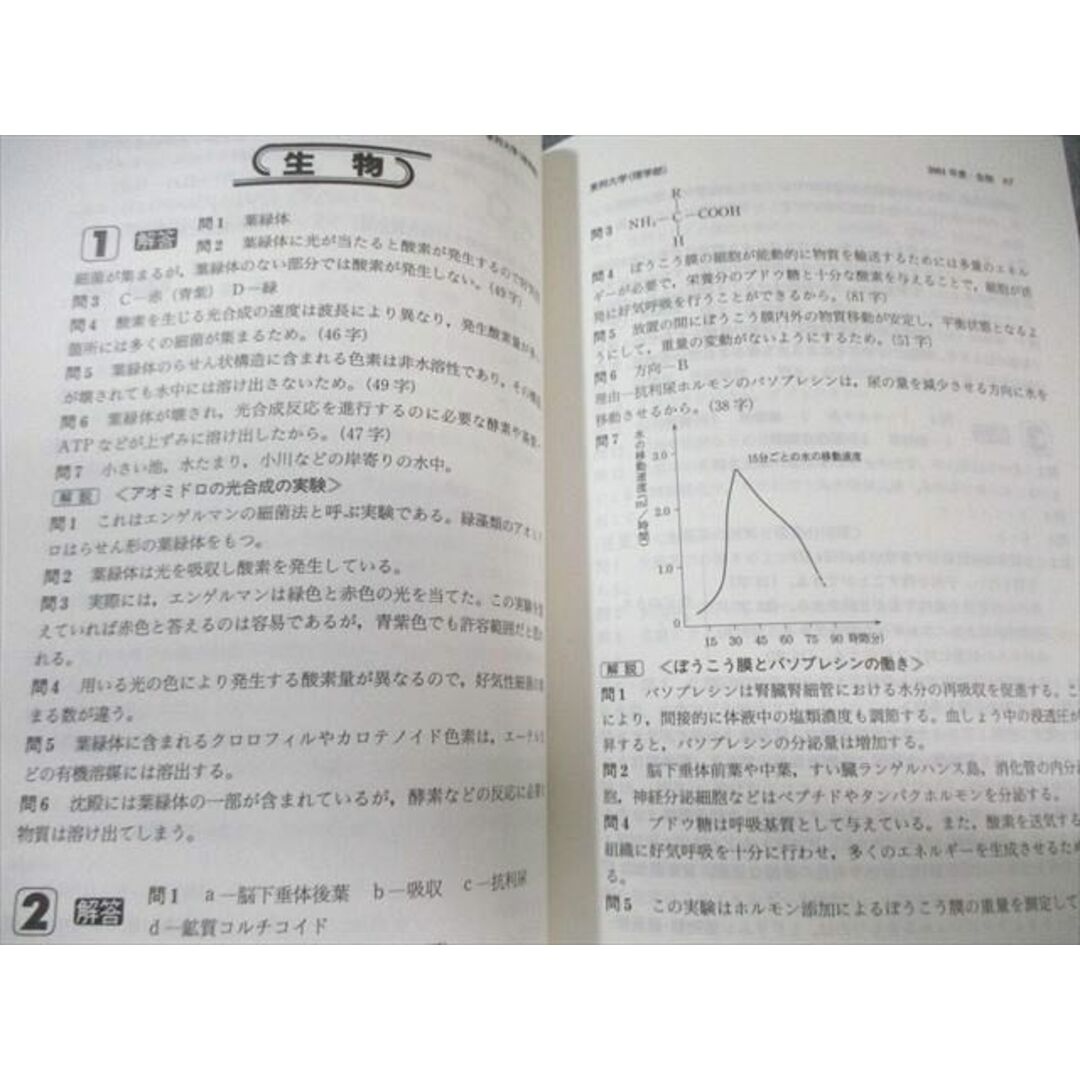 生物
1 解答 問1 葉緑体
問2 葉緑体に光が当たると酸素が発生するので好気性
細菌が集まるが，葉緑体のない部分では酸素が発生しない。(49字)
問3 C—赤（青紫） D—緑
問4 酸素を生じる光合成の速度は波長により異なり，発生酸素量が多い
箇所には多くの細菌が集まるため。(46字)
問5 葉緑体のらせん状構造に含まれる色素は非水溶性であり，その構造
が壊されても水中には溶け出さないため。(49字)
問6 葉緑体が壊され，光合成反応を進行するのに必要な酵素や
ATPなどが上ずみに溶け出したから。(47字)
問7 小さい池，水たまり，小川などの岸寄りの水中。
解説 ＜アオミドロの光合成の実験＞
問1 これはエンゲルマンの細菌法と呼ぶ実験である。緑藻類のアオミド
ロはらせん形の葉緑体をもつ。
問2 葉緑体は光を吸収し酸素を発生している。
問3 実際には，エンゲルマンは緑色と赤色の光を当てた。この実験を
えていれば赤色と答えるのは容易であるが，青紫色でも許容範囲だと
れる。
問4 用いる光の色により発生する酸素量が異なるので，好気性細菌の
まる数が違う。
問5 葉緑体に含まれるクロロフィルやカロテノイド色素は，エーテル
どの有機溶媒には溶出する。
問6 沈殿には葉緑体の一部が含まれているが，酵素などの反応に必要
物質は溶け出てしまう。
2 解答 問1 a—脳下垂体後葉 b—吸収 c—抗利尿
d—鉱質コルチコイド
大学(理学部)
R
問3 NH₂—C—COOH
H
問4 ぼうこう膜の細胞が能動的に物質を輸送するためには多量のエネル
ギーが必要で，栄養分のブドウ糖と十分な酸素を与えることで，細胞が活
発に好気呼吸を行うことができるから。(81字)
問5 放置の間にぼうこう膜内外の物質移動が安定し，平衡状態となるよ
うにして，重量の変動がないようにするため。(51字)
問6 方向—B
理由—抗利尿ホルモンのバソプレシンは，尿の量を減少させる方向に水を
移動させるから。(38字)
問7
水の移動速度(ml/時間)
15分ごとの水の移動速度
3.0
2.0
1.0
0
15 30 45 60 75 90 時間(分)
解説 ＜ぼうこう膜とバソプレシンの働き＞
問1 バソプレシンは腎臓腎細管における水分の再吸収を促進する。こ
により，間接的に体液中の塩類濃度も調節する。血しょう中の浸透圧が
昇すると，バソプレシンの分泌量は増加する。
問2 脳下垂体前葉や中葉，すい臓ランゲルハンス島，消化管の内分泌
胞，神経分泌細胞などはペプチドやタンパクホルモンを分泌する。
問4 ブドウ糖は呼吸基質として与えている。また，酸素を送気する
組織に好気呼吸を十分に行わせ，多くのエネルギーを生成させるため
る。
問5 この実験はホルモン添加によるぼうこう膜の重量を測定して